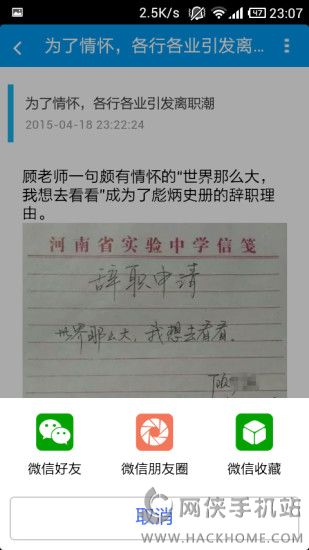 2.5K/s 47 23:07
为了情怀，各行各业引发离...
为了情怀，各行各业引发离职潮
2015-04-18 23:22:24
顾老师一句颇有情怀的“世界那么大，
我想去看看”成为了彪炳史册的辞职理
由。
河南省实验中学信笺
辞职申请
世界那么大，我想去看看。
微信好友 微信朋友圈 微信收藏
取消
网侠手机站
WWW.HACKHOME.COM